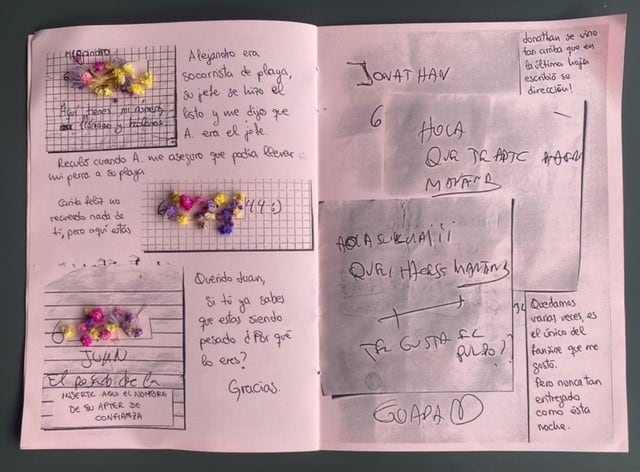 Alejandro
6
Aquí tienes mi número
llámame y hablamos
Alejandro era
socorrista de playa,
su jefe se hizo el
listo y me dijo que
A. era el jefe.
Reculó cuando A. me aseguró que podía llevar
mi perra a su playa
Carita feliz no
recuerdo nada de
ti, pero aquí estás
6
44 :)
6
JUAN
El pesado de la
INSERTE AQUÍ EL NOMBRE
DE SU AFTER DE
CONFIANZA
Querido Juan,
Si tú ya sabes
que estás siendo
pesado ¿Por qué
lo eres?
Gracias.
JONATHAN
Jonathan se vino
tan arriba que en
la última hoja
escribió su
dirección!
6
HOLA
QUE TE APTC
MAÑANA
QUE HACES MAÑANA
TE GUSTA EL
GUAPA
Quedamos
varias veces, es
el único del
fanzine que me
gustó.
Pero nunca tan
entregado
como esta
noche.